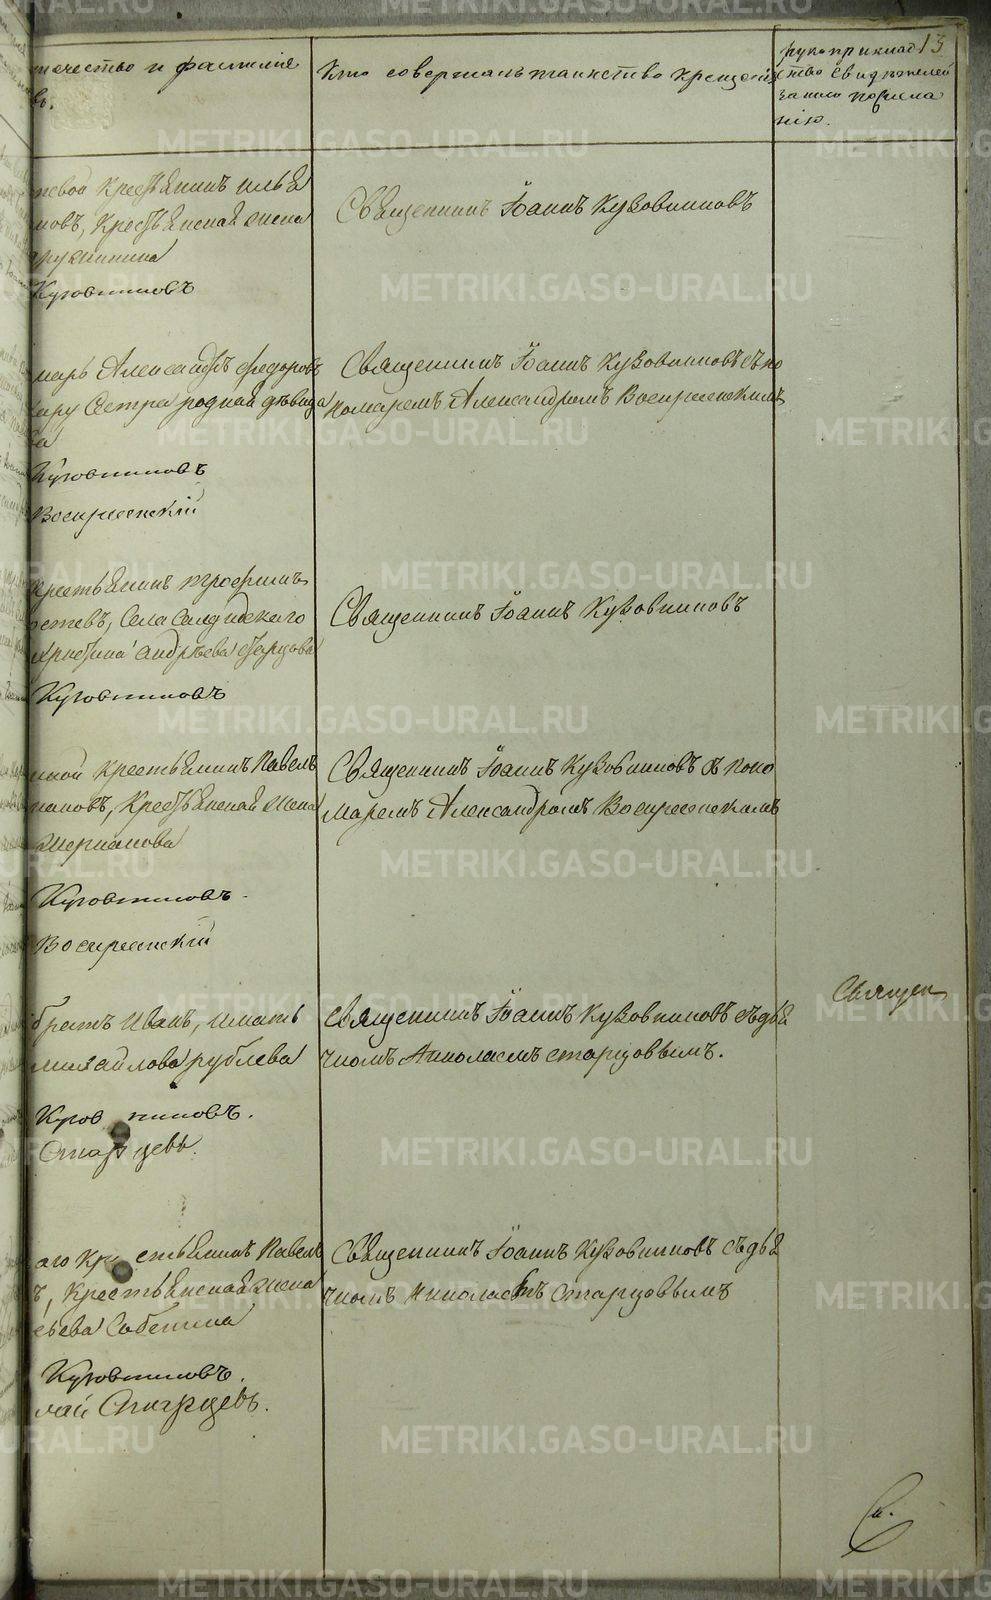 13
течество и фамилiя
въ.
Кто совершалъ таинство крещенiя
рукоприклад
ство свидѣтелей
записи по жела
нiю.
крестьянинъ Илья
новъ, Крестьянская жена
Кузовниковъ
Священникъ Iоаннъ Кузовниковъ
марь Александръ Федоровъ
Сестра родная дѣвица
Кузовниковъ
Воскресенскiй
Священникъ Iоаннъ Кузовниковъ съ по
номаремъ Александромъ Воскресенскимъ
крестьянинъ Трофимъ
Села Салдинскаго
Христина Андрѣева Старцова
Кузовниковъ
Священникъ Iоаннъ Кузовниковъ
крестьянинъ Павелъ
пановъ, Крестьянская жена
Кузовниковъ.
Воскресенскiй
Священникъ Iоаннъ Кузовниковъ съ поно
маремъ Александромъ Воскресенскимъ
братъ Иванъ, и мать
михайлова рублева
Кузовниковъ.
Старцевъ.
Священникъ Iоаннъ Кузовниковъ съ дья
чкомъ Николаемъ Старцовымъ.
Священ
аго крестьянинъ Павелъ
ъ, Крестьянская жена
Кузовниковъ.
лай Старцевъ.
Священникъ Iоаннъ Кузовниковъ съ дья
чкомъ Николаемъ Старцовымъ
METRIKI.GASO-URAL.RU